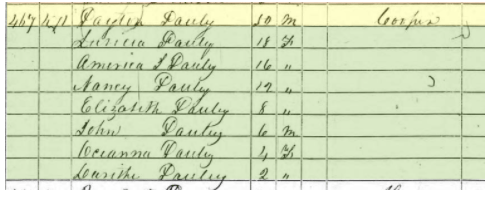 467 Dauly 50 M Cooper
Luticia Dauly 18 F
America I Dauly 16 "
Nancy Dauly 12 "
Elizabeth Dauly 8 "
John Dauly 6 M
Oceanna Dauly 4 F
Dauly 2 "